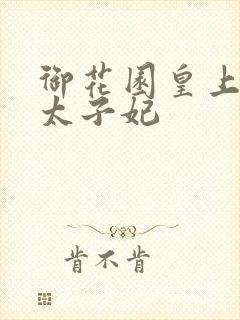 御花园皇上
太子妃
肯不肯